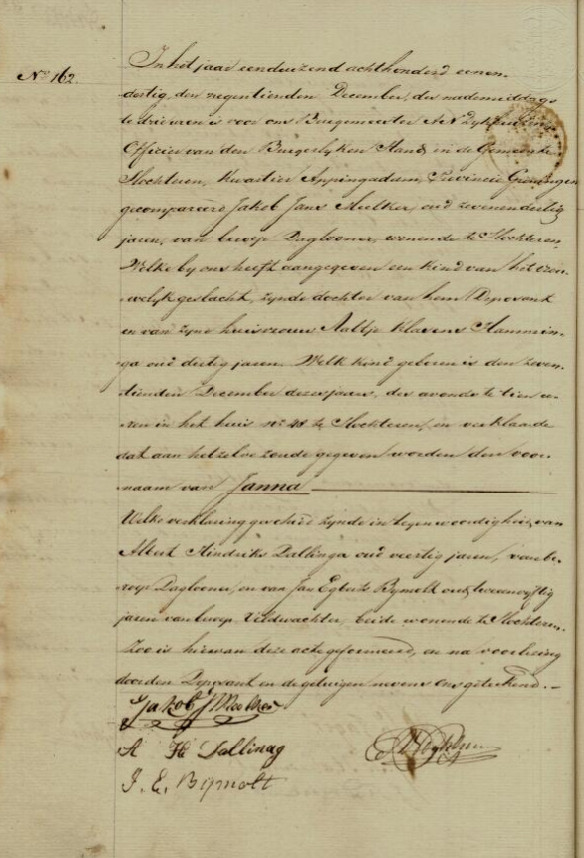 No 162
In het jaar eenduizend achthonderd eenen-
dertig, den negentienden December, des nademiddags
te drie uren is voor ons Burgemeester
Officier van den Burgerlyken Stand, in de Gemeente
Slochteren, Kwartier Appingadam, Provincie Groningen
gecompareerd Jakob Jans Meelker, oud zevenendertig
jaren, van beroep Daglooner, wonende te Slochteren,
Welke by ons heeft aangegeven een kind van het vrou-
welyk geslacht, zynde dochter van hem Deposant
en van zyne huisvrouw Aaltje Klasens Hammin-
ga oud dertig jaren. Welk kind geboren is den zeven-
tienden December dezes jaars, des avonds te tien u-
ren in het huis no 48 te Slochteren, en verklaarde
dat aan hetzelve zoude gegeven worden den voor-
naam van Janna
Welke verklaring geschied zynde in tegenwoordigheid, van
Albert Hindriks Dallinga oud veertig jaren, van be-
roep Daglooner, en van Jan Egberts Bymolt oud tweeenvyftig
jaren van beroep Veldwachter, beide wonende te Slochteren.
Zoo is hiervan deze acte geformeerd, en na voorlezing
door den Deposant en de getuigen nevens ons geteekend.
Jakob J Meelker
A H Dallinag
J. E. Bymolt